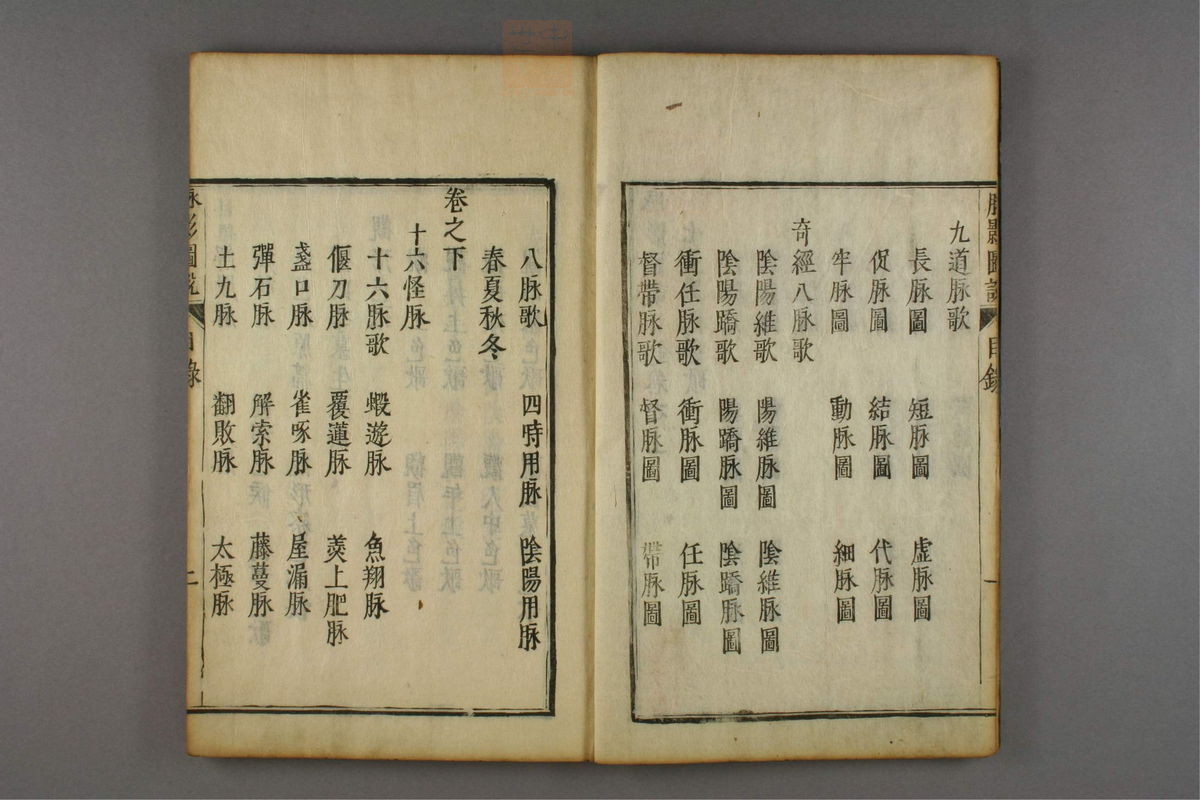 脉影圖說 目錄 一
九道脉歌
長脉圖 短脉圖 虛脉圖
促脉圖 結脉圖 代脉圖
牢脉圖 動脉圖 細脉圖
奇經八脉歌
陰陽維脉歌 陽維脉圖 陰維脉圖
陰陽蹻脉歌 陽蹻脉圖 陰蹻脉圖
衝任脉歌 衝脉圖 任脉圖
督帶脉歌 督脉圖 帶脉圖
八脉歌
春夏秋冬 四時用脉 陰陽用脉
卷之下
十六怪脉
十六脉歌 蝦遊脉 魚翔脉
偃刀脉 覆蓮脉 羮上肥脉
盞口脉 雀啄脉 屋漏脉
彈石脉 解索脉 藤蔓脉
土九脉 翻敗脉 太極脉
脉影圖說 目錄 二